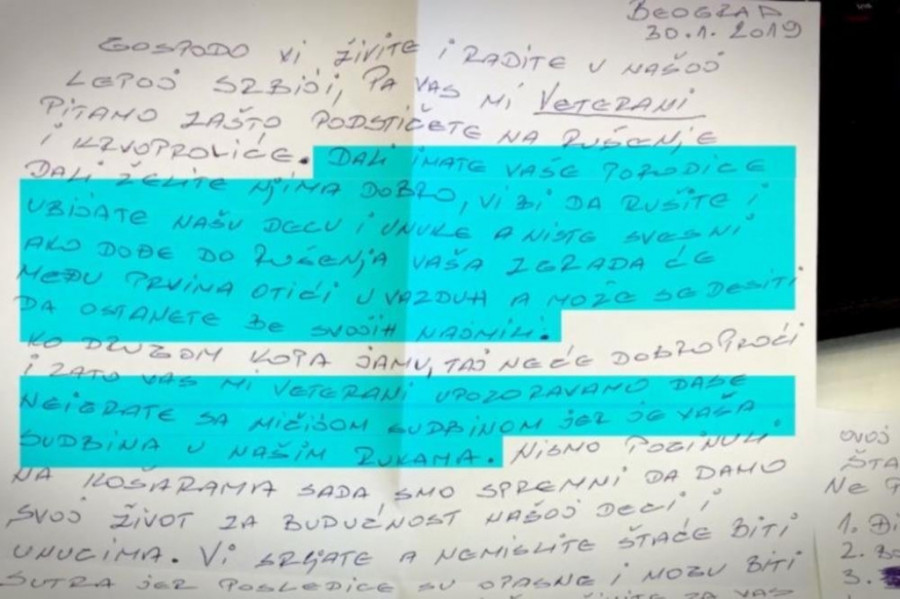 BEOGRAD
30.1. 2019
GOSPODO VI ŽIVITE I RADITE U NAŠOJ
LEPOJ SRBIJI, PA VAS MI VETERANI
PITAMO ZAŠTO PODSTIČETE NA RUŠENJE
I KRVOPROLIĆE. DALI IMATE VAŠE PORODICE
DALI ŽELITE NJIMA DOBRO, VI BI DA RUŠITE I
UBIJATE NAŠU DECU I UNUKE A NISTE SVESNI
AKO DOĐE DO RUŠENJA VAŠA ZGRADA ĆE
MEĐU PRVIMA OTIĆI U VAZDUH A MOŽE SE DESITI
DA OSTANETE BE SVOJIH NAJMILI.
KO DRUGOM KOPA JAMU, TAJ NEĆE DOBRO PROĆI
I ZATO VAS MI VETERANI UPOZORAVAMO DASE
NEIGRATE SA MIČIJOM SUDBINOM JER JE VAŠA
SUDBINA U NAŠIM RUKAMA. NISMO POGINULI
NA KOŠARAMA SADA SMO SPREMNI DA DAMO
SVOJ ŽIVOT ZA BUDUĆNOST NAŠOJ DECI I
UNUCIMA. VI SRLJATE A NEMISLITE ŠTAĆE BITI
SUTRA JER POSLEDICE SU OPASNE I MOGU BITI
ZA VAS
OVOJ
ŠTA
NE
1. ĐI
2. BO
3.